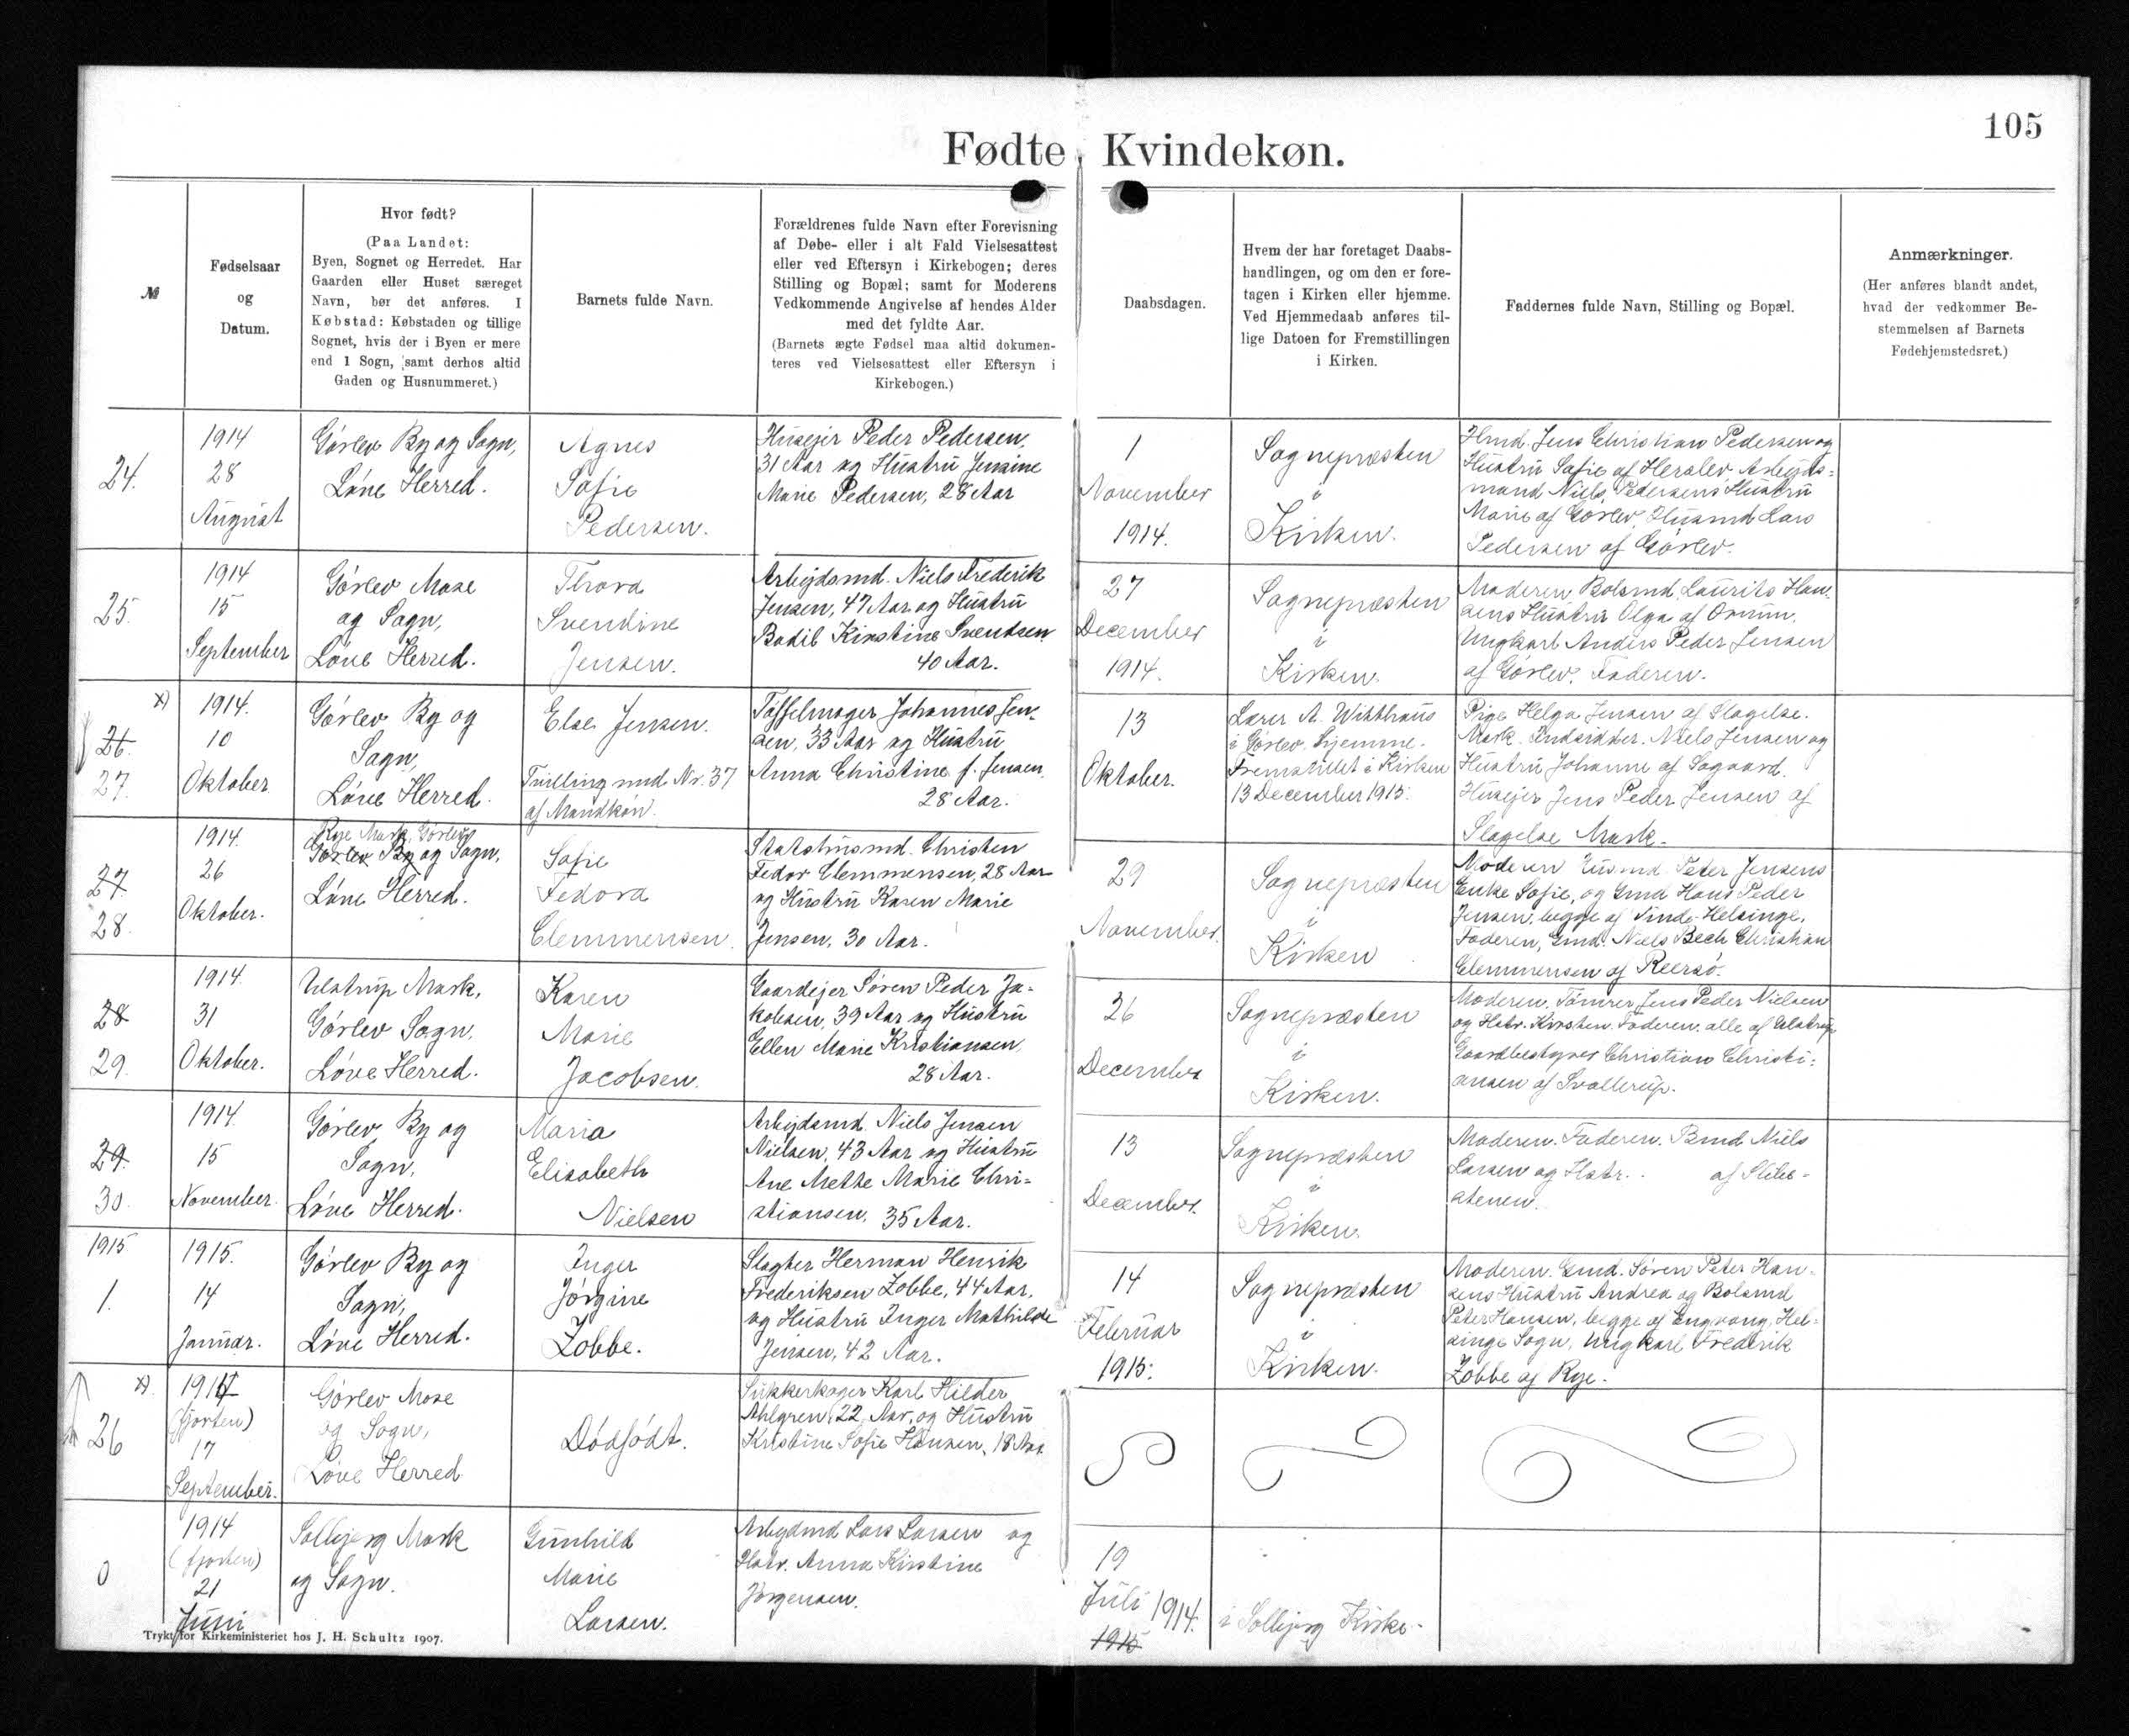 105
Fødte, Kvindekøn.
№
Fødselsaar
og
Datum.
Hvor født?
(Paa Landet:
Byen, Sognet og Herredet. Har
Gaarden eller Huset særeget
Navn, bør det anføres. I
Købstad: Købstaden og tillige
Sognet, hvis der i Byen er mere
end 1 Sogn, samt derhos altid
Gaden og Husnummeret.)
Barnets fulde Navn.
Forældrenes fulde Navn efter Forevisning
af Døbe- eller i alt Fald Vielsesattest
eller ved Eftersyn i Kirkebogen; deres
Stilling og Bopæl; samt for Moderens
Vedkommende Angivelse af hendes Alder
med det fyldte Aar.
(Barnets ægte Fødsel maa altid dokumen-
teres ved Vielsesattest eller Eftersyn i
Kirkebogen.)
Daabsdagen.
Hvem der har foretaget Daabs-
handlingen, og om den er fore-
tagen i Kirken eller hjemme.
Ved Hjemmedaab anføres til-
lige Datoen for Fremstillingen
i Kirken.
Faddernes fulde Navn, Stilling og Bopæl.
Anmærkninger.
(Her anføres blandt andet,
hvad der vedkommer Be-
stemmelsen af Barnets
Fødehjemstedsret.)
24.
1914
28
August
Gørlev By og Sogn,
Løve Herred.
Agnes
Sofie
Pedersen.
Husejer Peder Pedersen,
31 Aar og Hustru Jensine
Marie Pedersen, 28 Aar
1
November
1914.
Sognepræsten
i
Kirken.
Hmd. Jens Christian Pedersen og
Hustru Sofie af Herslev. Arbejds=
mand Niels Pedersens Hustru
Marie af Gørlev, Husmd Lars
Pedersen af Gørlev.
25.
1914
15
September
Gørlev Mose
og Sogn,
Løve Herred.
Thora
Svendine
Jensen.
Arbejdsmd. Niels Frederik
Jensen, 47 Aar og Hustru
Bodil Kirstine Svendsen
40 Aar.
27
December
1914.
Sognepræsten
i
Kirken.
Moderen Bolsmd. Laurits Han-
sens Hustru Olga af Ornum.
Ungkarl Anders Peder Jensen
af Gørlev. Faderen.
x)
26.
27.
1914.
10
Oktober
Gørlev By og
Sogn,
Løve Herred.
Else Jensen.
Tvilling med Nr. 37
af Mandkøn.
Tøffelmager Johannes Jen-
sen, 33 Aar og Hustru
Anna Christine f. Jensen
28 Aar.
13
Oktober.
Lærer A. Witthøus
i Gørlev. Hjemme.
Fremstillet i Kirken
13 December 1915.
Pige Helga Jensen af Slagelse.
Mark. Indsidder. Niels Jensen og
Hustru Johanne af Søgaard.
Husejer Jens Peder Jensen af
Slagelse Mark.
27.
28.
1914.
26
Oktober.
Rye Mark, Gørlev
Gørlev By og Sogn,
Løve Herred.
Sofie
Fedora
Clemmensen.
Statshusmd. Christen
Fedor Clemmensen, 28 Aar
og Hustru Karen Marie
Jensen, 30 Aar.
29
November.
Sognepræsten
i
Kirken
Moderen Husmd Peter Jensens
Enke Sofie, og Gmd Hans Peder
Jensen, begge af Finde-Helsinge,
Faderen, Gmd. Niels Bech Christian
Clemmensen af Reersø.
28
29.
1914.
31
Oktober.
Ulstrup Mark,
Gørlev Sogn,
Løve Herred.
Karen
Marie
Jacobsen.
Gaardejer Søren Peder Ja-
kobsen, 39 Aar og Hustru
Ellen Marie Kristiansen,
28 Aar.
26
December
Sognepræsten
i
Kirken.
Moderen, Tømrer Jens Peder Nielsen
og Hstr. Kirsten. Faderen, alle af Ulstrup
Gaardbestyrer Christian Christi-
ansen af Svallerup.
29.
30.
1914.
15
November.
Gørlev By og
Sogn,
Løve Herred.
Maria
Elisabeth
Nielsen
Arbejdsmd. Niels Jensen
Nielsen, 43 Aar og Hustru
Ane Mette Marie Chri-
stiansen, 35 Aar.
13
December.
Sognepræsten
i
Kirken.
Moderen. Faderen. Bmd Niels
Larsen og Hstr. . af Stibs-
stenen.
1915
1.
1915.
14
Januar.
Gørlev By og
Sogn,
Løve Herred.
Inger
Jørgine
Zobbe.
Slagter Herman Henrik
Frederiksen Zobbe, 44 Aar,
og Hustru Inger Mathilde
Jensen, 42 Aar.
14
Februar
1915.
Sognepræsten
i
Kirken.
Moderen. Gmd. Søren Peter Han-
sens Hustru Andrea og Bolsmd
Peter Hansen, begge af Engvang, Hel-
singe Sogn, Ungkarl Frederik
Zobbe af Rye.
x)
26
1914
(fjorten)
17
September.
Gørlev Mose
og Sogn,
Løve Herred
Dødfødt.
Sukkerkoger Karl Hilder
Ahlgren, 22 Aar, og Hustru
Kristine Sofie Hansen, 18 Aar
0
1914
(fjorten)
21
Juni
Solbjerg Mark
og Sogn.
Gunhild
Marie
Larsen.
Arbejdmd Lars Larsen og
Hstr. Anna Kirstine
Jørgensen.
19
Juli 1914.
1915
i Solbjerg Kirke.
Trykt for Kirkeministeriet hos J. H. Schultz 1907.